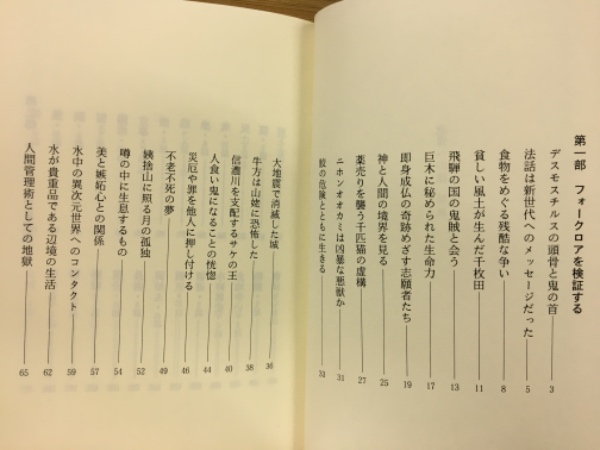 第一部 フォークロアを検証する
デスモスチルスの頭骨と鬼の首 3
法話は新世代へのメッセージだった 5
食物をめぐる残酷な争い 8
貧しい風土が生んだ千枚田 11
飛騨の国の鬼賊と会う 13
巨木に秘められた生命力 17
即身成仏の奇跡めざす志願者たち 19
神と人間の境界を見る 25
薬売りを襲う千匹猫の虚構 27
ニホンオオカミは凶暴な悪獣か 31
の危険とともに生きる 33
大地震で消滅した城 36
牛方は山姥に恐怖した 38
信濃川を支配するサケの王 40
人食い鬼になることの恍惚 44
災厄や罪を他人に押し付ける 46
不老不死の夢 49
姨捨山に照る月の孤独 52
噂の中に生息するもの 54
美と嫉妬心との関係 57
水中の異次元世界へのコンタクト 59
水が貴重品である辺境の生活 62
人間管理術としての地獄 65